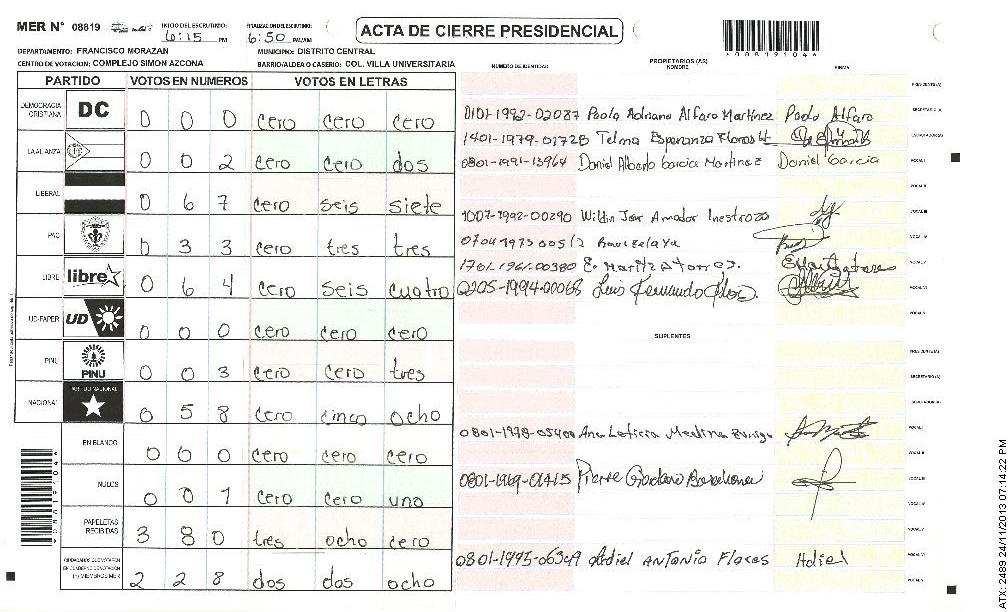 MER N° 08819
INICIO DEL ESCRUTINIO:
6:15 PM
FINALIZACION DEL ESCRUTINIO:
6:50 PM/AM
ACTA DE CIERRE PRESIDENCIAL
*08819104*
DEPARTAMENTO: FRANCISCO MORAZAN
MUNICIPIO: DISTRITO CENTRAL
CENTRO DE VOTACION: COMPLEJO SIMON AZCONA
BARRIO/ALDEA O CASERIO: COL. VILLA UNIVERSITARIA
NUMERO DE IDENTIDAD
PROPIETARIOS (AS)
NOMBRE
FIRMA
PARTIDO VOTOS EN NUMEROS VOTOS EN LETRAS
DEMOCRACIA CRISTIANA DC 0 0 0 cero cero cero
LA ALIANZA 0 0 2 cero cero dos
LIBERAL 0 6 7 cero seis siete
PAC 0 3 3 cero tres tres
LIBRE libre 0 6 4 cero seis cuatro
UD-FAPER UD 0 0 0 cero cero cero
PINU PINU 0 0 3 cero cero tres
NACIONAL PARTIDO NACIONAL 0 5 8 cero cinco ocho
EN BLANCO 0 0 0 cero cero cero
NULOS 0 0 1 cero cero uno
PAPELETAS RECIBIDAS 3 8 0 tres ocho cero
CIUDADANOS QUE VOTARON
EN CUADERNO DE VOTACION
(+) MIEMBROS MER 2 2 8 dos dos ocho
PRESIDENTE(A)
0101-1992-02087 Paola Adriana Alfaro Martinez Paola Alfaro
SECRETARIO(A)
1401-1979-01728 Telma Esperanza Flores H
ESCRUTADOR(A)
0801-1991-13964 Daniel Alberto Garcia Martinez Daniel Garcia
VOCAL I
VOCAL II
1007-1992-00290 Amador Inestroza
VOCAL III
VOCAL IV
1701-1961-00380 E. Maritza Torres.
VOCAL V
0205-1994-00068 Luis Fernando
VOCAL VI
SUPLENTES
PRESIDENTE(A)
SECRETARIO(A)
ESCRUTADOR(A)
Ana Leticia Medina
VOCAL I
VOCAL II
VOCAL III
VOCAL IV
VOCAL V
0801-1995-06349 Adiel ANTONIO Flores Adiel
VOCAL VI
*08819104*
ATX-2489 24/11/2013 07:14:22 PM